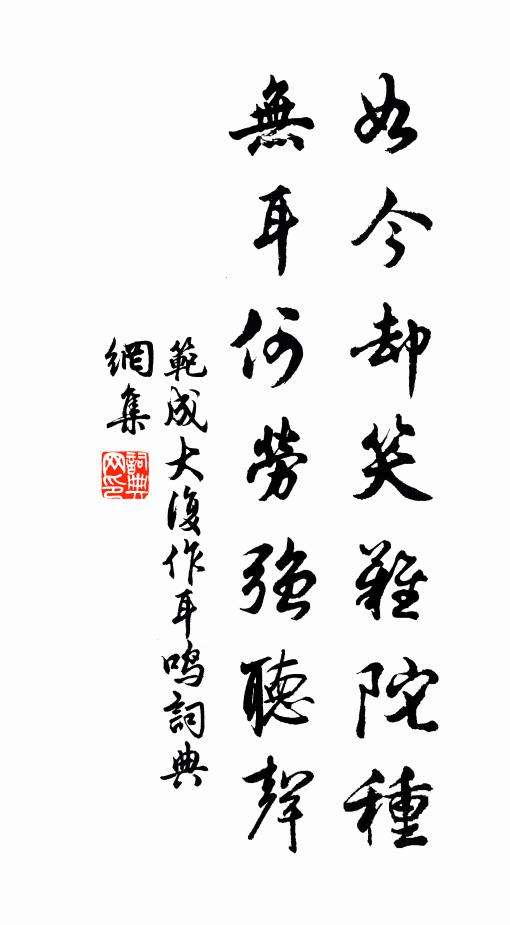 如今却笑難陀種
無耳何勞強聽聲
範成大復作耳鳴詞典
網集
詞典網印